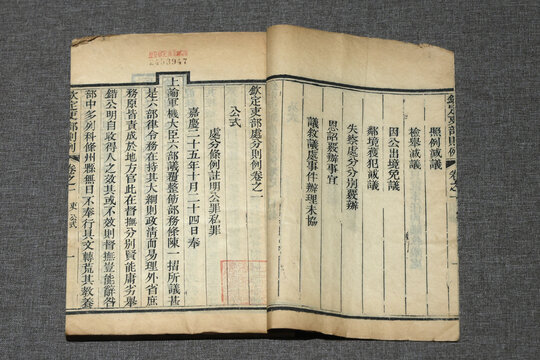 欽定吏部則例 卷之一
照例減議
檢舉減議
因公出境免議
鄰境獲犯減議
失察處分分別覈辦
恩詔覈辦事宜
議敘議處事件辦理未協
欽定吏部處分則例卷之一
公式
處分條例註明公罪私罪
嘉慶二十五年十月二十四日奉
上諭軍機大臣六部議覆整飭部務條陳一摺所議甚
是六部律令務在持其大綱則政清而易理外省庶
務原皆責成於地方官此在督撫分別賢能庸劣舉
錯公明自收得人之效其或不效則督撫豈能辭咎
部中多列科條州縣無日不奉行具文轉荒其教養
欽定吏部則例 卷之一 吏 公式 一
2453947